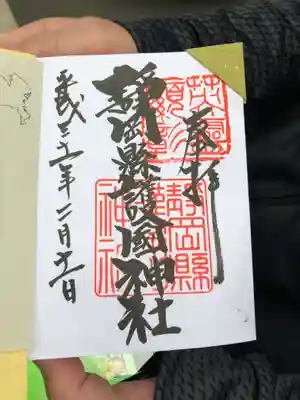 奉拝
静岡縣護國神社
平成三十一年二月十一日
靜岡縣護國神社